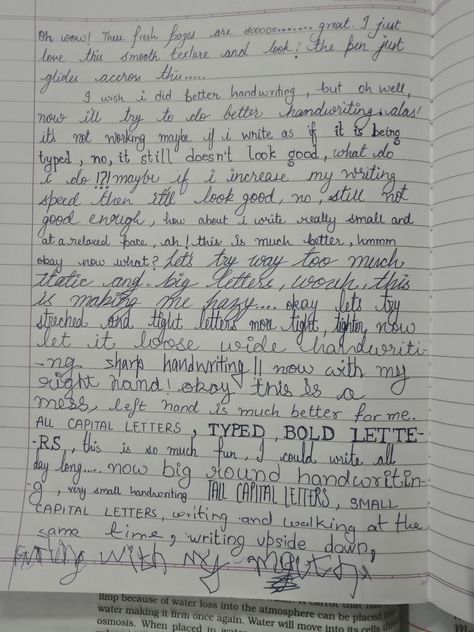 Oh wow! These fresh pages are soooo....... great. I just
love this smooth texture and look! the pen just
glides accros this.....
I wish i did better handwriting, but oh well,
now i'll try to do better handwriting. alas!
it's not working maybe if i write as if it is being
typed, no, it still doesn't look good, what do
i do !?! maybe if i increase my writing
speed then it'll look good, no, still not
good enough, how about i write really small and
at a relaxed pace, ah! this is much better, hmmm
okay now what? let's try way too much
italic and big letters, woah, this
is making me hazy.... okay lets try
streched and tight letters more tight, tighter, now
let it loose wide handwriti-
-ng. sharp handwriting || now with my
right hand! okay this is a
mess, left hand is much better for me.
ALL CAPITAL LETTERS, TYPED, BOLD LETTE-
-RS, this is so much fun, I could write all
day long.... now big round handwritin-
-g, very small handwriting TALL CAPITAL LETTERS, SMALL
CAPITAL LETTERS, writing and walking at the
same time, writing upside down,
writing with my mouth,
limp because of water loss into the atmosphere can be placed in
water making it firm once again. Water will move into its cells
osmosis. When placed in